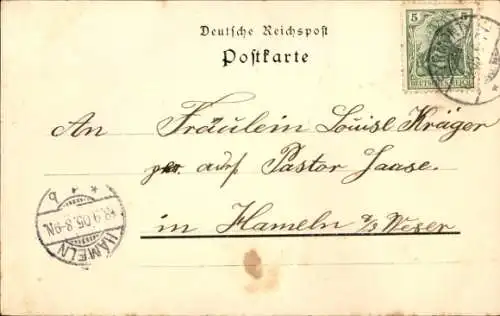 Deutsche Reichspost
Postkarte
5 5
DEUTSCHES REICH
An Fräulein Louise Kräger
adr. Pastor Saase.
in Hameln a/s Weser
HAMELN
8.9.05.8-9N.
* * b